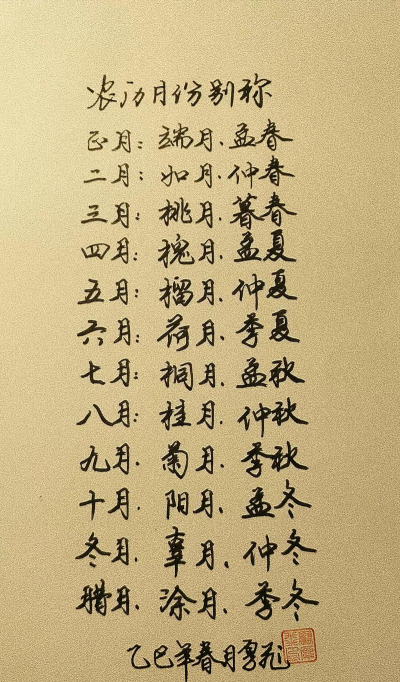 农历月份别称
正月：端月、孟春
二月：如月、仲春
三月：桃月、暮春
四月：槐月、孟夏
五月：榴月、仲夏
六月：荷月、季夏
七月：桐月、孟秋
八月：桂月、仲秋
九月、菊月、季秋
十月、阳月、孟冬
冬月、辜月、仲冬
腊月、涂月、季冬
乙巳年春月